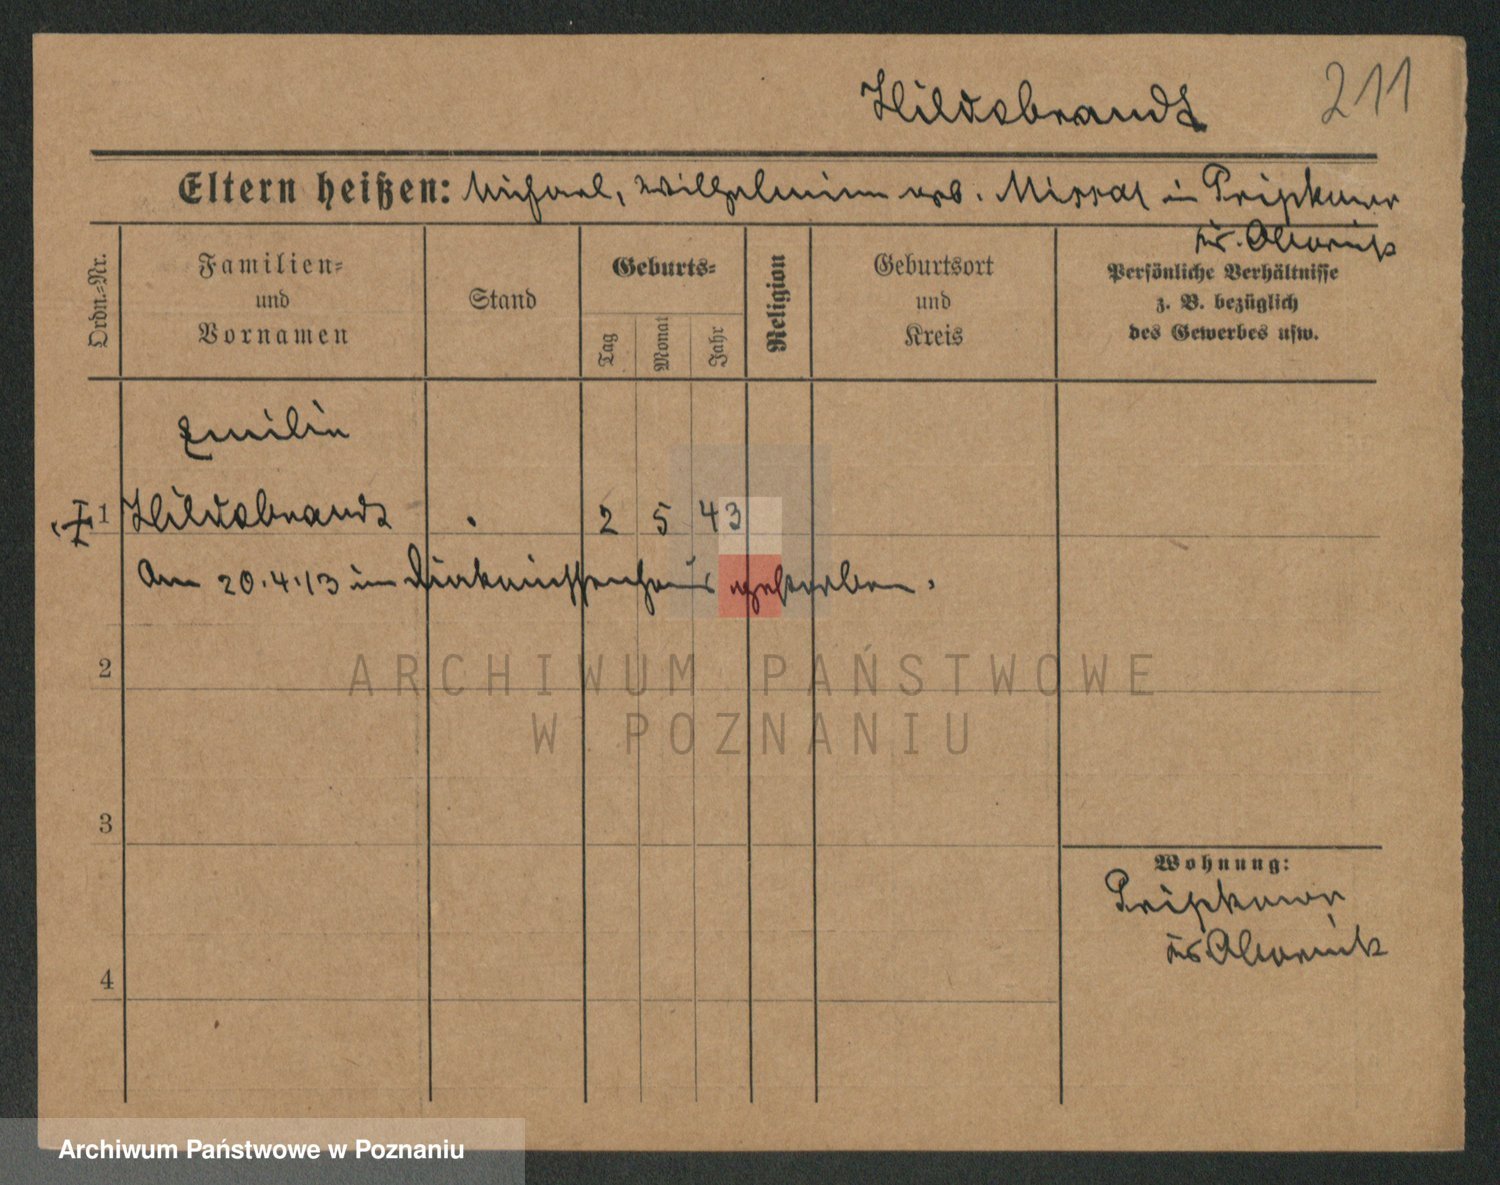 211
Hildebrandt
Eltern heißen: Michael, Wilhelmine geb. Missal in
Ordn.-Nr.
Familien-
und
Vornamen
Stand
Geburts-
Tag
Monat
Jahr
Religion
Geburtsort
und
Kreis
Persönliche Verhältnisse
z. B. bezüglich
des Gewerbes usw.
Emilie
1 Hildebrandt 2 5 43
Am 20.4.13 im Diakonissenhaus gestorben.
2
3
4
Wohnung:
ARCHIWUM PAŃSTWOWE
W POZNANIU
Archiwum Państwowe w Poznaniu